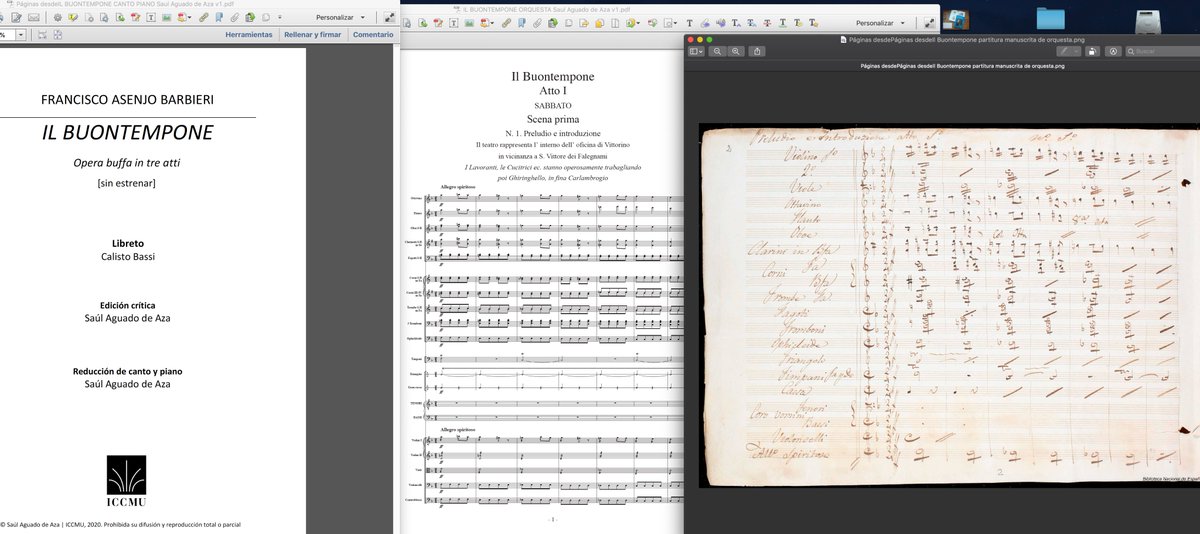 Páginas desdeIL BUONTEMPONE CANTO PIANO Saúl Aguado de Aza v1.pdf
Personalizar
%
Herramientas
Rellenar y firmar
Comentario
FRANCISCO ASENJO BARBIERI
IL BUONTEMPONE
Opera buffa in tre atti
[sin estrenar]
Libreto
Calisto Bassi
Edición crítica
Saúl Aguado de Aza
Reducción de canto y piano
Saúl Aguado de Aza
ICCMU
© Saúl Aguado de Aza | ICCMU, 2020. Prohibida su difusión y reproducción total o parcial
IL BUONTEMPONE ORQUESTA Saúl Aguado de Aza V1.pdf
Personalizar
Il Buontempone
Atto I
SABBATO
Scena prima
N. 1. Preludio e introduzione
Il teatro rappresenta l' interno dell' oficina di Vittorino
in vicinanza a S. Vittore dei Falegnami
I Lavoranti, le Cucitrici ec. stanno operosamente trabagliando
poi Ghiringhello, in fina Carlambrogio
Allegro spiritoso
TENORI
BASSI
Allegro spiritoso
Violin I
Violin II
- 1 -
Páginas desdePáginas desdeIl Buontempone partitura manuscrita de orquesta.png
Buscar
Páginas desdePáginas desdeIl Buontempone partitura manuscrita de orquesta.png
2
Preludio e Introduzione Atto
Violino
2º
Viole
Ottavino
Flauto
Oboe
Clarini in
Corni
Trombe
Fagotti
Tromboni
Triangolo
Timpani
Cassa
Tenori
Coro uomini
Bassi
Violoncelli
Spiritoso
2
Biblioteca Nacional de España